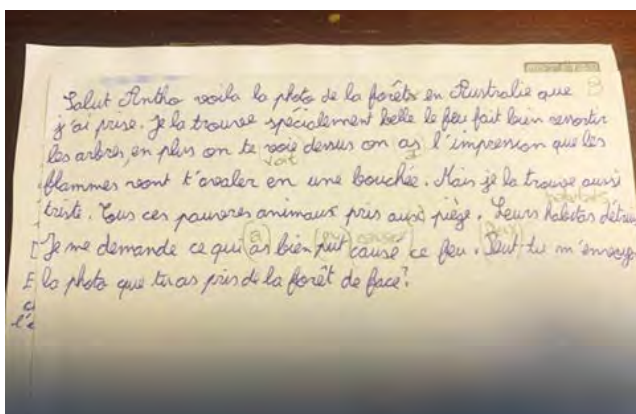 Salut Antho voila la photo de la forêts en Australie que B
j'ai prise. Je la trouve spécialement belle le feu fait bien ressortir
les arbres, en plus on te voie dessus on as l'impression que les
voit
flammes vont t'avaler en une bouchée. Mais je la trouve aussi
triste. Tous ces pauvres animaux pris aux piège. Leurs habitas détrui
Je me demande ce qui as bien put causé ce feu. Peut tu m'envoye
la photo que tu as pris de la forêt de face?
E
c
l'e